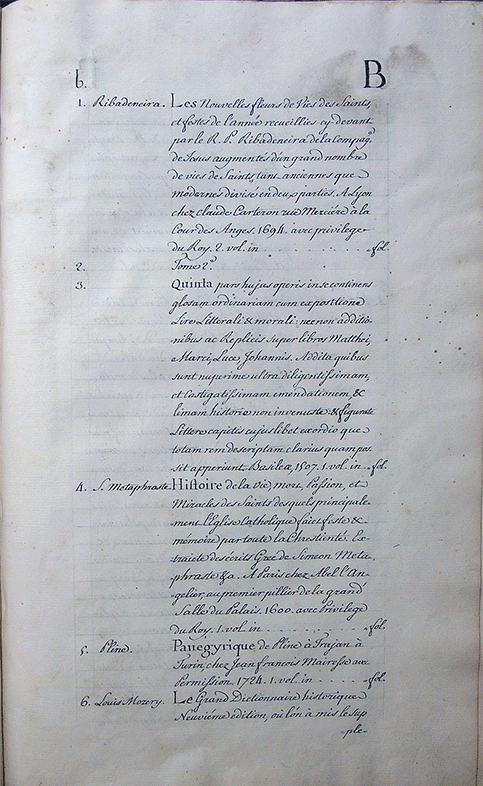 b. B
1. Ribadeneira. Les Nouvelles fleurs de Vies des Saints,
et festes de l'année recueillies cy devant
par le R. P. Ribadeneira de la Compag.e
de Jesus augmentés d'un grand nombre
de vies de Saints, tant anciennes que
modernes divisé en deux parties. A Lyon
chez claude Carteron rue Merciére à la
Cour des Anges. 1694. avec privilege
du Roy. 2. vol. in . . . . . . . fol.
2. Tome 2.e
3. Quinta pars hujus operis in se continens
glosam ordinariam cum expositione
Lire Litterali & morali: necnon additio-
nibus ac Replicis super libros Matthei,
Marci, Luce, Johannis. Addita quibus
sunt nuperime ultra diligentissimam,
et Castigatissimam emendationem, &
limam historie non invenuste & figurate
Littere capitis cujuslibet exordio que
totam rem descriptam clarius quam pos-
sit apperiunt. Basileæ, 1507. 1. vol. in . fol.
4. S. Metaphraste. Histoire de la vie, mort, Passion, et
Miracles des Saints desquels principale-
ment l'Eglise Catholique fait feste &
mémoire par toute la Chrestienté. Ex-
traicte des écrits Grec de Simeon Meta-
phraste &a. A Paris chez Abel l'An-
gelier, au premier pillier de la grand'
Salles du Palais. 1600. avec Privilége
du Roy. 1. vol. in . . . . . . . fol.
5. Pline. Panegyrique de Pline à Trajan à
Turin, chez Jean francois Mairesse aux
Permission. 1724. 1. vol. in . . . . . fol.
6. Louis Morery. Le Grand Dictionnaire historique
Neuviéme édition, où l'on à mis le sup
ple-